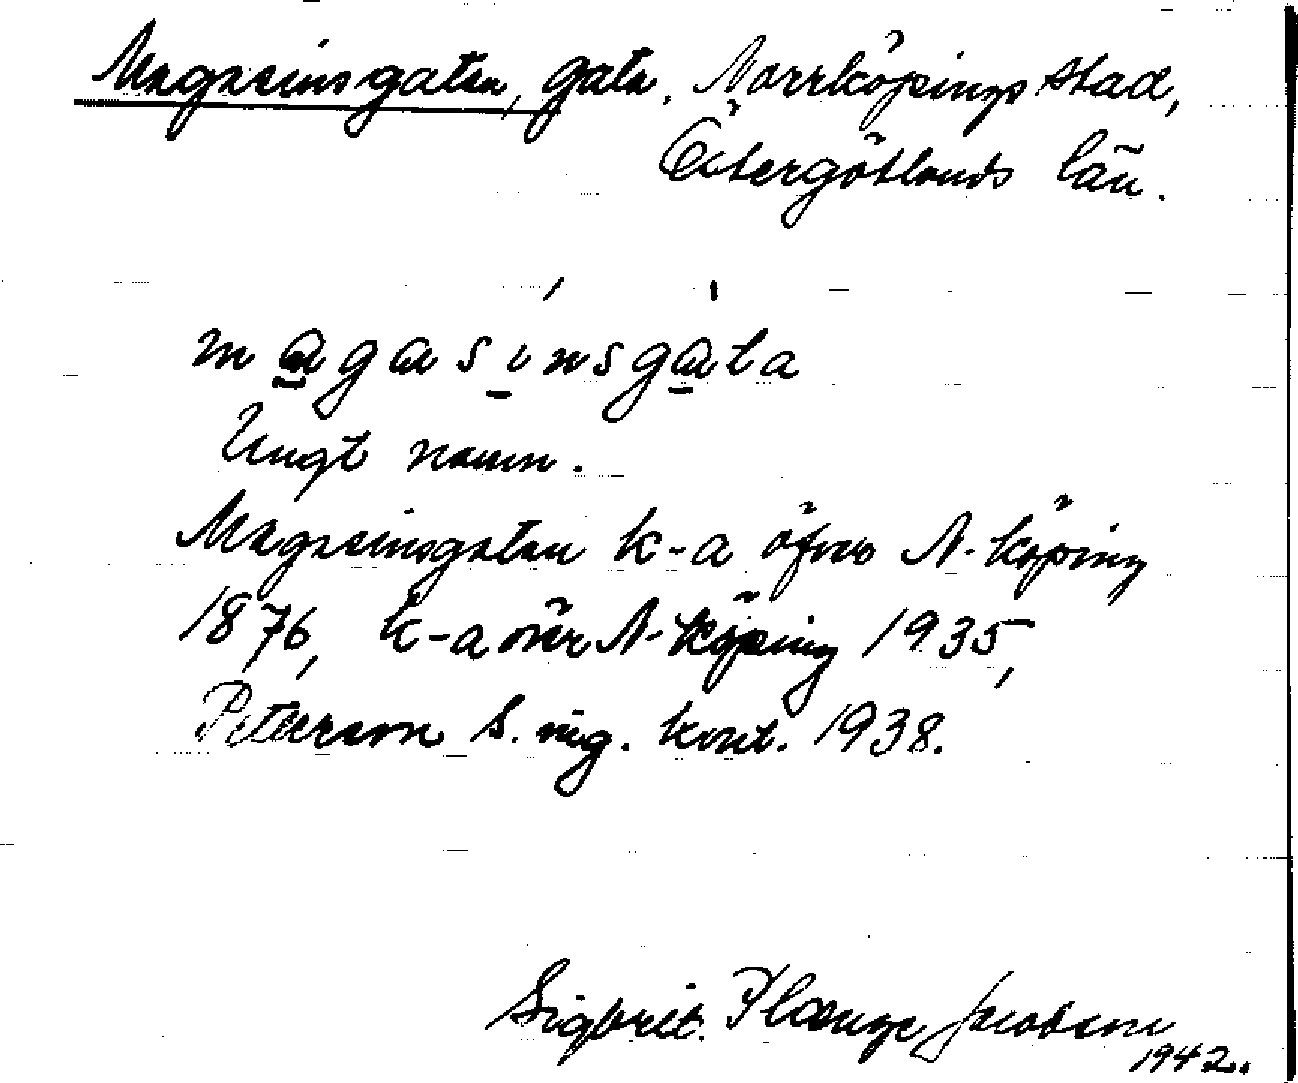 Magasinsgatan, gata, Norrköpings stad,
Östergötlands län.
magasinsgata
Ungt namn.
Magasinsgatan k-a öfver N-köping
1876, k-a över N-köping 1935,
Peterson S. ing. kont. 1938.
Sigbrit Plænge Jacobson
1942.